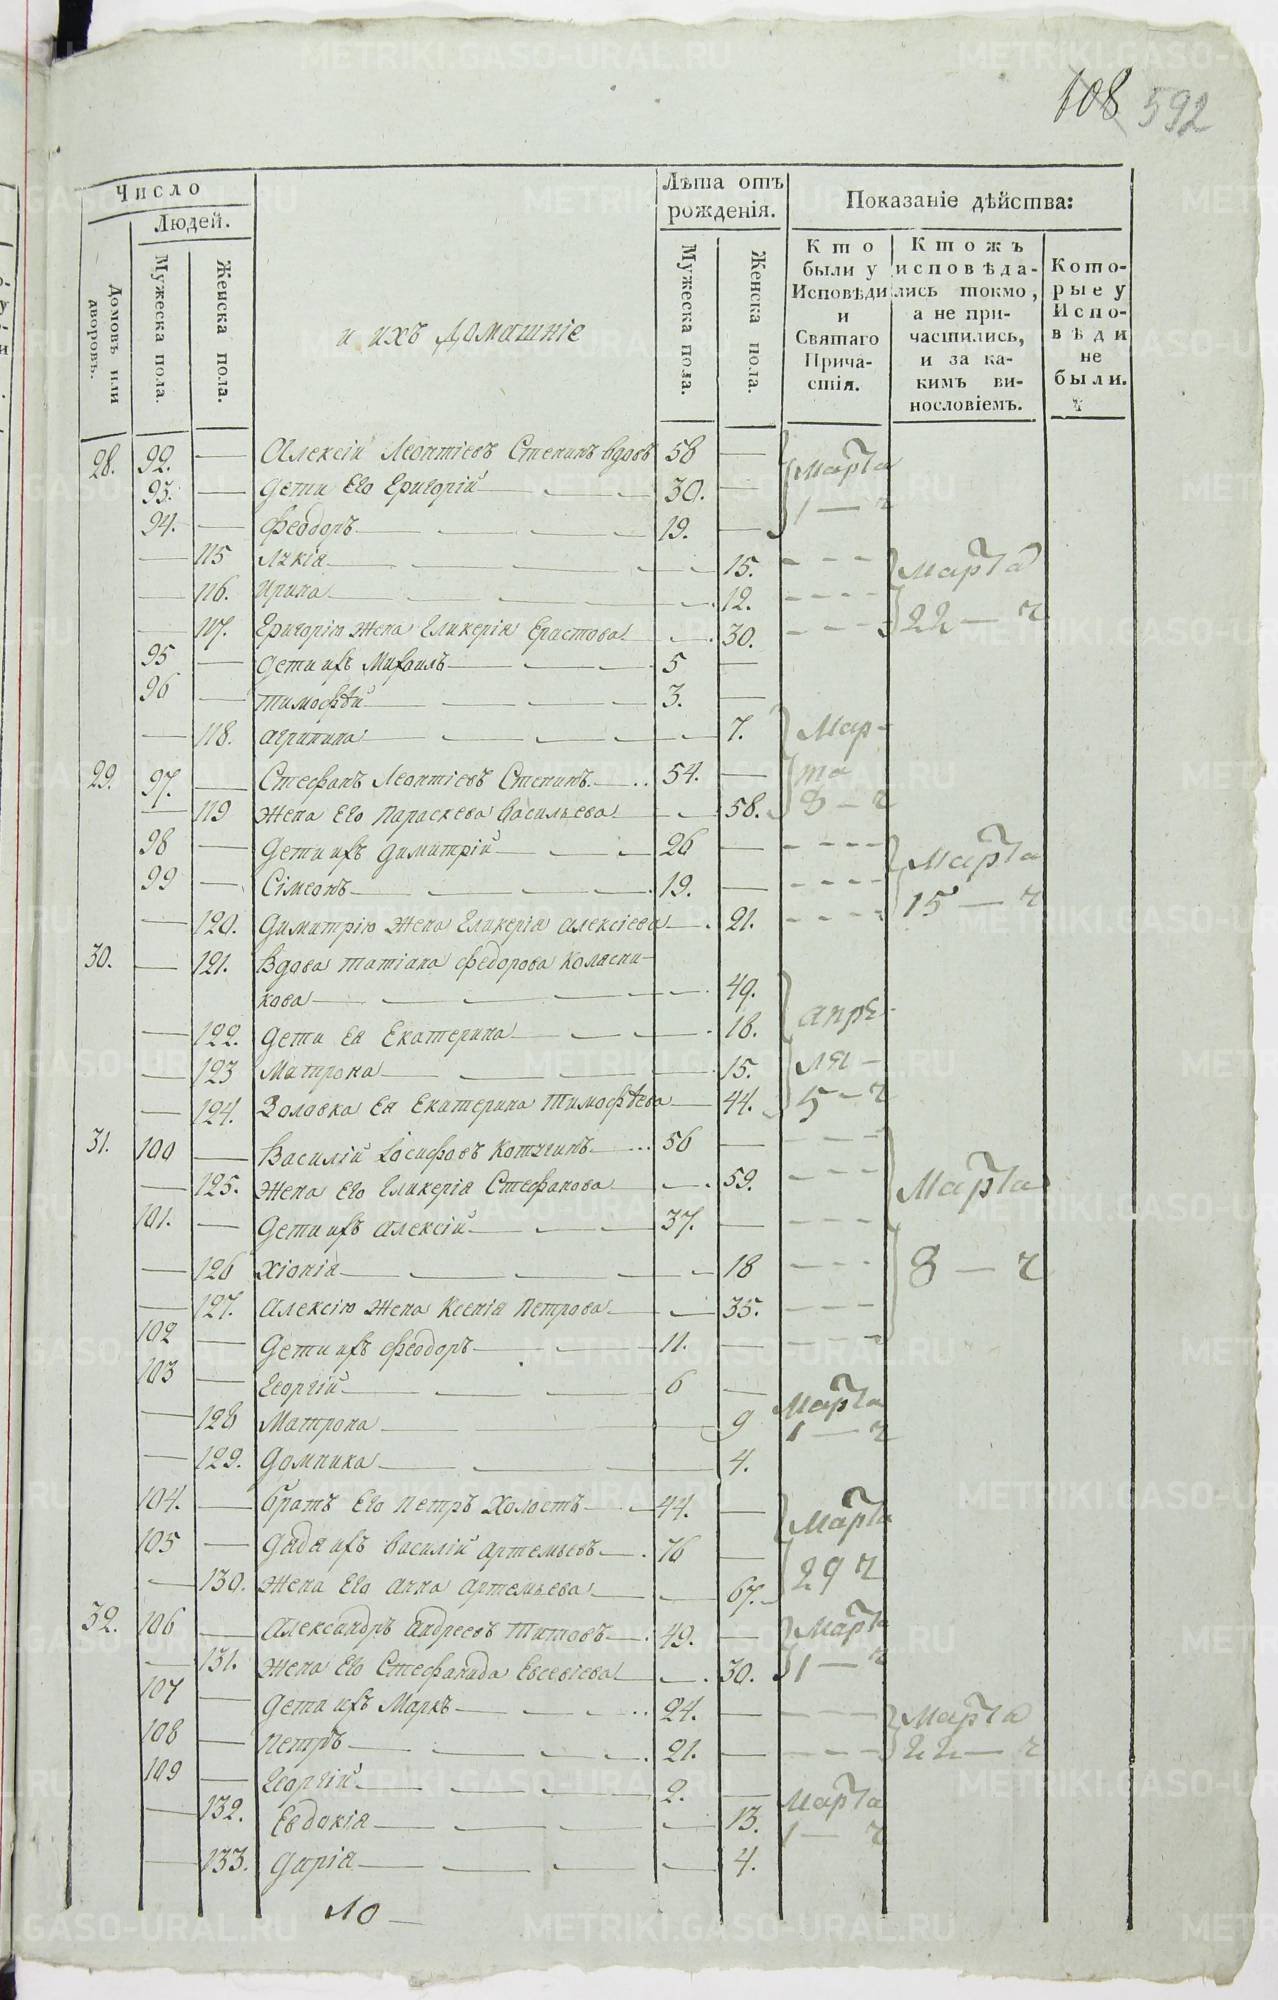 108 592
Число
Людей.
Домовъ или дворовъ.
Мужеска пола.
Женска пола.
и ихъ домашніе
Лѣта отъ рожденія.
Мужеска пола.
Женска пола.
Показаніе дѣйства:
Кто были у Исповѣди и Святаго Причастія.
Ктожъ исповѣдались токмо, а не причастились, и за какимъ винословіемъ.
Которые у Исповѣди не были.
28. 92. — Алексій Леонтіевъ Степинъ вдовъ 58 — Марта
93. — Дети Его Григорій 30. — 1 — ч
94. — Феодоръ 19. —
— 115 Лукія 15. Марта
— 116. Ирина 12. 22 — ч
— 117. Григорію Жена Гликерія Ерастова 30.
95 — Дети ихъ Михаилъ 5 —
96 — Тимофѣй 3. —
— 118. Агрипина 7. Мар-
29. 97. — Стефанъ Леонтіевъ Степинъ 54. — та
— 119 Жена Его Параскева Васильева 58. 8 — ч
98 — Дети ихъ Димитрій 26 — Марта
99 — Сімеонъ 19. — 15 — ч
— 120. Димитрію Жена Гликерія Алексіева 21.
30. — 121. Вдова Татіана Федорова Колясни-
кова 49. Апре-
— 122. Дети Ея Екатерина 18.
— 123 Матрона 15. ля —
— 124. Золовка Ея Екатерина Тимофѣева 44. 5 — ч
31. 100 — Василій Іосифовъ 56 —
— 125. Жена Его Гликерія Стефанова 59. Марта
101. — Дети ихъ Алексій 37. —
— 126 Хіонія 18 8 — ч
— 127. Алексію Жена Ксенія Петрова 35.
102 — Дети ихъ Феодоръ 11. —
103 — Георгій 6 — Марта
— 128 Матрона 9 1 — ч
— 129. Домника 4.
104. — Братъ Его Петръ Холостъ 44. — Марта
105 — Дядя ихъ Василій Артемьевъ 76 — 29 ч
— 130. Жена Его Анна Артемьева 67.
32. 106 — Александръ Андреевъ Титовъ 49. — Марта
— 131. Жена Его Стефанида Евсевіева 30. 1 — ч
107 — Дети ихъ Маркъ 24. — Марта
108 — Петръ 21. — 22 — ч
109 — Георгій 2. — Марта
— 132. Евдокія 13. 1 — ч
— 133. Дарія 4.
10 —
METRIKI.GASO-URAL.RU